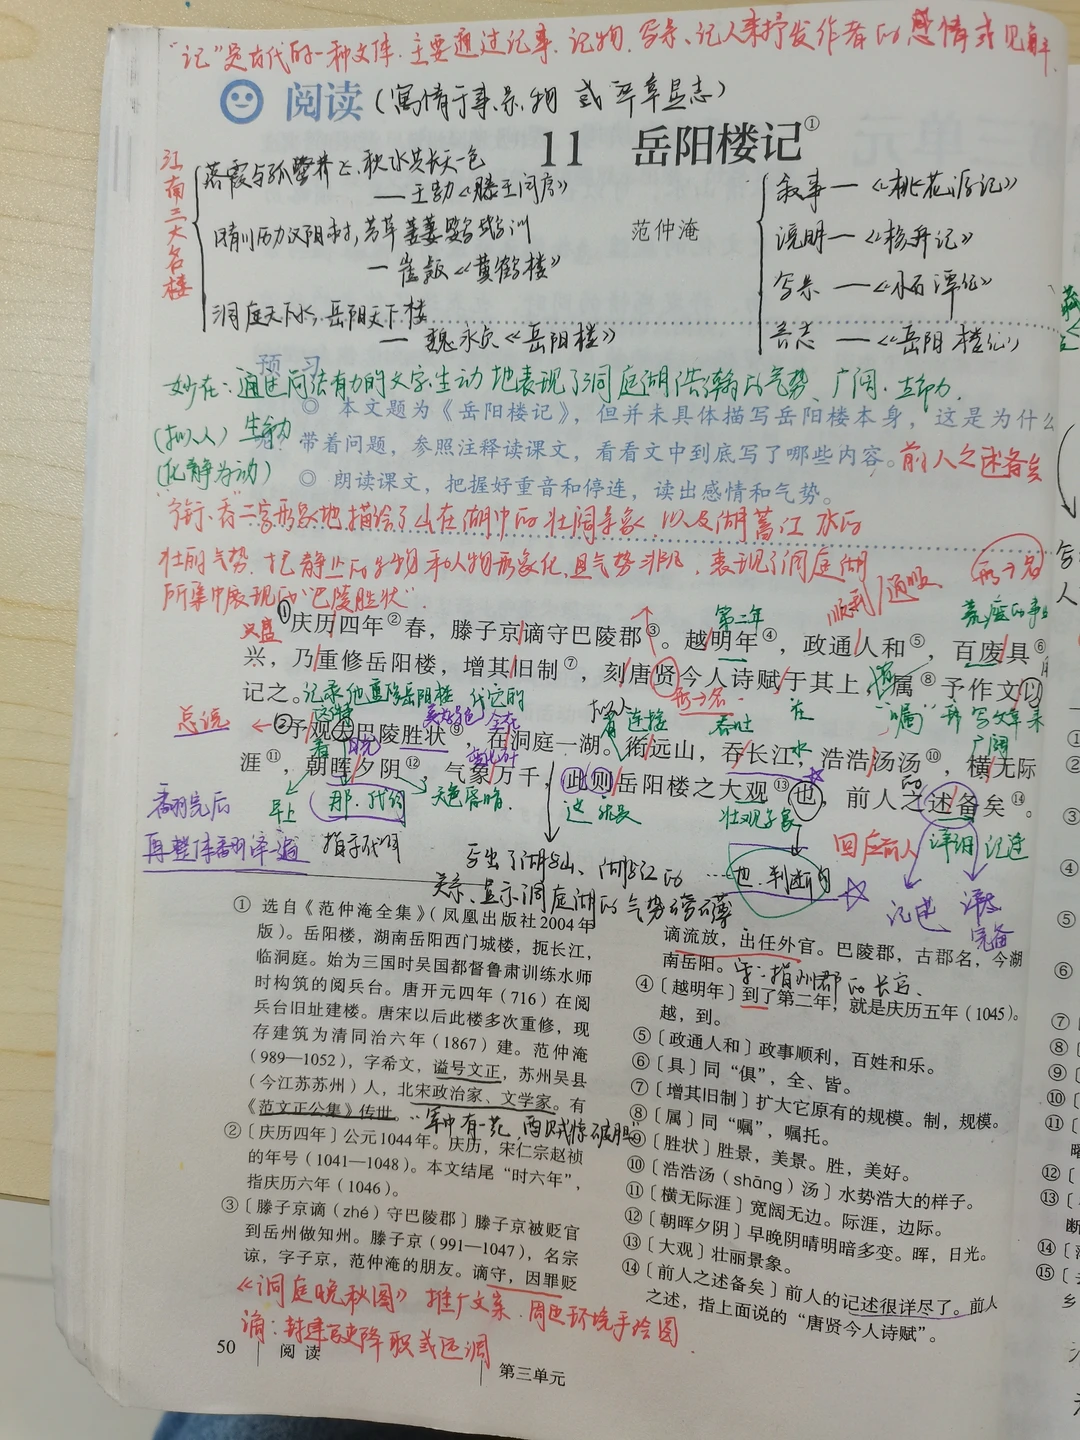 “记”是古代的一种文体.主要通过记事、记物、写景、记人来抒发作者的感情或见解.
阅读(寓情于事、景、物 或 显志)
11 岳阳楼记①
范仲淹
江南三大名楼
落霞与孤鹜齐飞、秋水共长天一色
—王勃《滕王阁序》
晴川历历汉阳树,芳草萋萋鹦鹉洲
—崔颢《黄鹤楼》
洞庭天下水,岳阳天下楼
— 魏永贞《岳阳楼》
叙事—《桃花源记》
说明—《核舟记》
写景—《小石潭记》
言志—《岳阳楼记》
预 习
妙在:通过简洁有力的文字生动地表现了洞庭湖浩瀚的气势、广阔.
◎ 本文题为《岳阳楼记》,但并未具体描写岳阳楼本身,这是为什么
(拟人)生动
带着问题,参照注释读课文,看看文中到底写了哪些内容。前人之述备矣
(化静为动)
◎ 朗读课文,把握好重音和停连,读出感情和气势。
二字形象地描绘了山在湖中的壮阔景象,以及湖蓄江水的
壮丽气势.把静止的 物和人物形象化,且气势非凡,表现了洞庭湖
所集中展现的“巴陵胜状”.
顺利/通顺
形→名
兴盛
第二年
荒废的事
①庆历四年②春,滕子京谪守巴陵郡③。越明年④,政通人和⑤,百废具⑥
兴,乃重修岳阳楼,增其旧制⑦,刻唐贤今人诗赋于其上,属⑧予作文以
记之。记录他重修岳阳楼
形→名
在
“嘱” 写文章来
总说
②予观夫巴陵胜状⑨,在洞庭一湖。衔远山,吞长江,浩浩汤汤⑩,横无际
看
连接
吞吐
水
广阔
涯⑪,朝晖夕阴⑫,气象万千,此则岳阳楼之大观⑬也,前人之述备矣⑭。
早上
那.代词
天色昏暗.
这 就是
壮观景象
回应前人
详细 记述
翻完后
再整体翻译一遍
指示代词
写出了湖与山、湖与江的
关系、显示洞庭湖的气势磅礴
…也.判断句
记述
详尽
完备
① 选自《范仲淹全集》(凤凰出版社2004年
版)。岳阳楼,湖南岳阳西门城楼,扼长江,
临洞庭。始为三国时吴国都督鲁肃训练水师
时构筑的阅兵台。唐开元四年(716)在阅
兵台旧址建楼。唐宋以后此楼多次重修,现
存建筑为清同治六年(1867)建。范仲淹
(989—1052),字希文,谥号文正,苏州吴县
(今江苏苏州)人,北宋政治家、文学家。有
《范文正公集》传世。“军中有一范,西贼惊破胆”
②〔庆历四年〕公元1044年。庆历,宋仁宗赵祯
的年号(1041—1048)。本文结尾“时六年”,
指庆历六年(1046)。
③〔滕子京谪(zhé)守巴陵郡〕滕子京被贬官
到岳州做知州。滕子京(991—1047),名宗
谅,字子京,范仲淹的朋友。谪守,因罪贬
谪流放,出任外官。巴陵郡,古郡名,今湖
南岳阳。守:指州郡的长官.
④〔越明年〕到了第二年,就是庆历五年(1045)。
越,到。
⑤〔政通人和〕政事顺利,百姓和乐。
⑥〔具〕同“俱”,全、皆。
⑦〔增其旧制〕扩大它原有的规模。制,规模。
⑧〔属〕同“嘱”,嘱托。
⑨〔胜状〕胜景,美景。胜,美好。
⑩〔浩浩汤(shāng)汤〕水势浩大的样子。
⑪〔横无际涯〕宽阔无边。际涯,边际。
⑫〔朝晖夕阴〕早晚阴晴明暗多变。晖,日光。
⑬〔大观〕壮丽景象。
⑭〔前人之述备矣〕前人的记述很详尽了。前人
之述,指上面说的“唐贤今人诗赋”。
《洞庭晚秋图》推广文案.周边环境手绘图
谪:封建官吏降职或远调
50
阅 读
第三单元